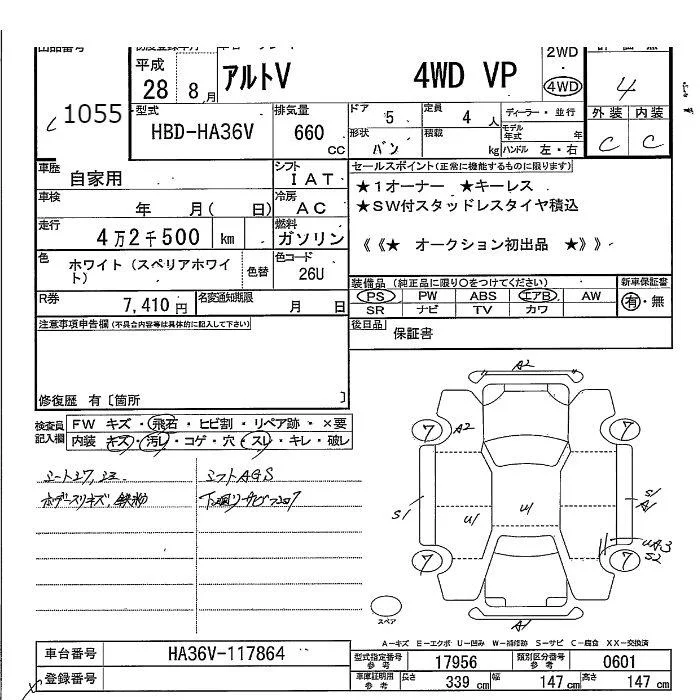 1055
平成
28
8月
アルトV
4WD VP
2WD
・
4WD
4
型式
HBD-HA36V
排気量
660
cc
ドア
5
定員
4
人
ディーラー・並行
モデル
年式
年
外装
内装
C
C
形状
バン
積載
kg
ハンドル 左・右
車歴
自家用
シフト
IAT
車検
年 月( 日)
冷房
AC
走行
4万2千500
km
燃料
ガソリン
色
ホワイト(スペリアホワイ
ト)
色替
色コード
26U
R券
7,410円
名変通知期限
月 日
セールスポイント(正常に機能するものに限ります)
★1オーナー ★キーレス
★SW付スタッドレスタイヤ積込
《《★ オークション初出品 ★》》
装備品(純正品に限り○をつけてください)
新車保証書
PS PW ABS エアB AW
SR ナビ TV カワ
有・無
注意事項申告欄(不具合内容等は具体的に記入して下さい)
後日品
保証書
修復歴 有〔箇所 〕
検査員
記入欄
FW キズ・飛石・ヒビ割・リペア跡・×要
内装 キズ・汚レ・コゲ・穴・スレ・キレ・破レ
シフトAGS
A2
7
7
A2
S1
U1
U1
S1
A1
UA3
S2
7
7
A1
スペア
A-キズ E-エクボ U-凹み W-補修跡 S-サビ C-腐食 XX-交換済
車台番号
HA36V-117864
登録番号
型式指定番号
参考
17956
類別区分番号
参考
0601
車庫証明用
参考
長さ
339 cm
幅
147 cm
高さ
147 cm